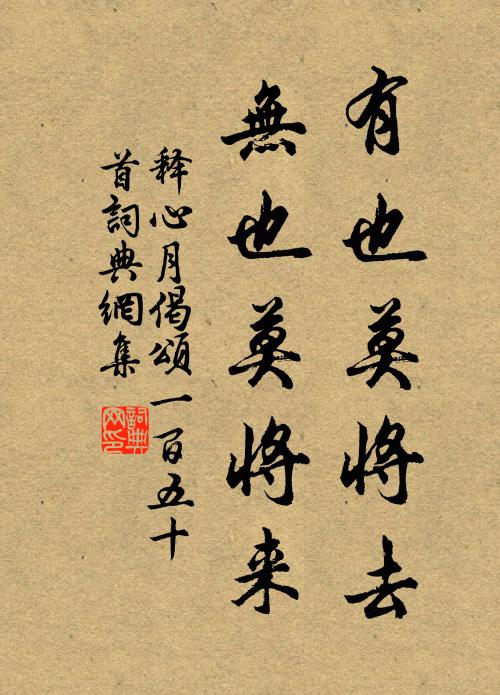 有也莫將去
無也莫將来
释心月偈頌一百五十
首詞典網集
詞典
网印